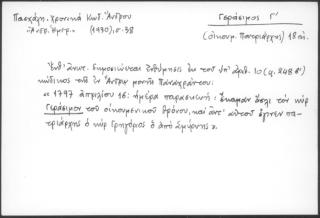 Πασχάλη. Χρονικά Κωτ. Άνδρου
Γεράσιμος Γ'
"Ανδρ. Ημερ. (1930), σ. 38
(Οικουμ. Πατριάρχης) 18 αι.
Ενθ' ανωτ. δημοσιεύεται ενθύμησις εκ του υπ' αριθ. 10 (φ. 248 β')
κώδικος της εν Άνδρω μονής Παναχράντου:
« 1797 απριλίου 16: ημέρα παρασκευή: έκαμαν τον κυρ
Γεράσιμον του οικουμενικού θρόνου, και αντ' αυτού έγινεν πα-
τριάρχης ο κυρ Γρηγόριος ο από Σμύρνης ».